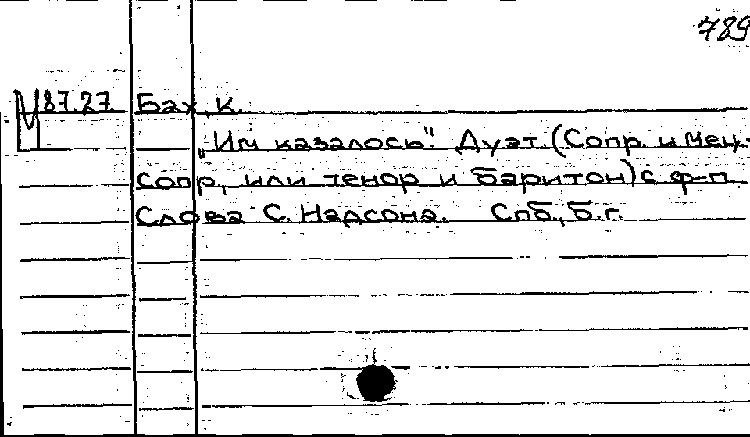 789
М 87.27 Бах, К.
„Им казалось". Дуэт (Сопр. и мец.-
сопр., или тенор и баритон) с ф-п.
Слова С. Надсона. Спб., б.г.